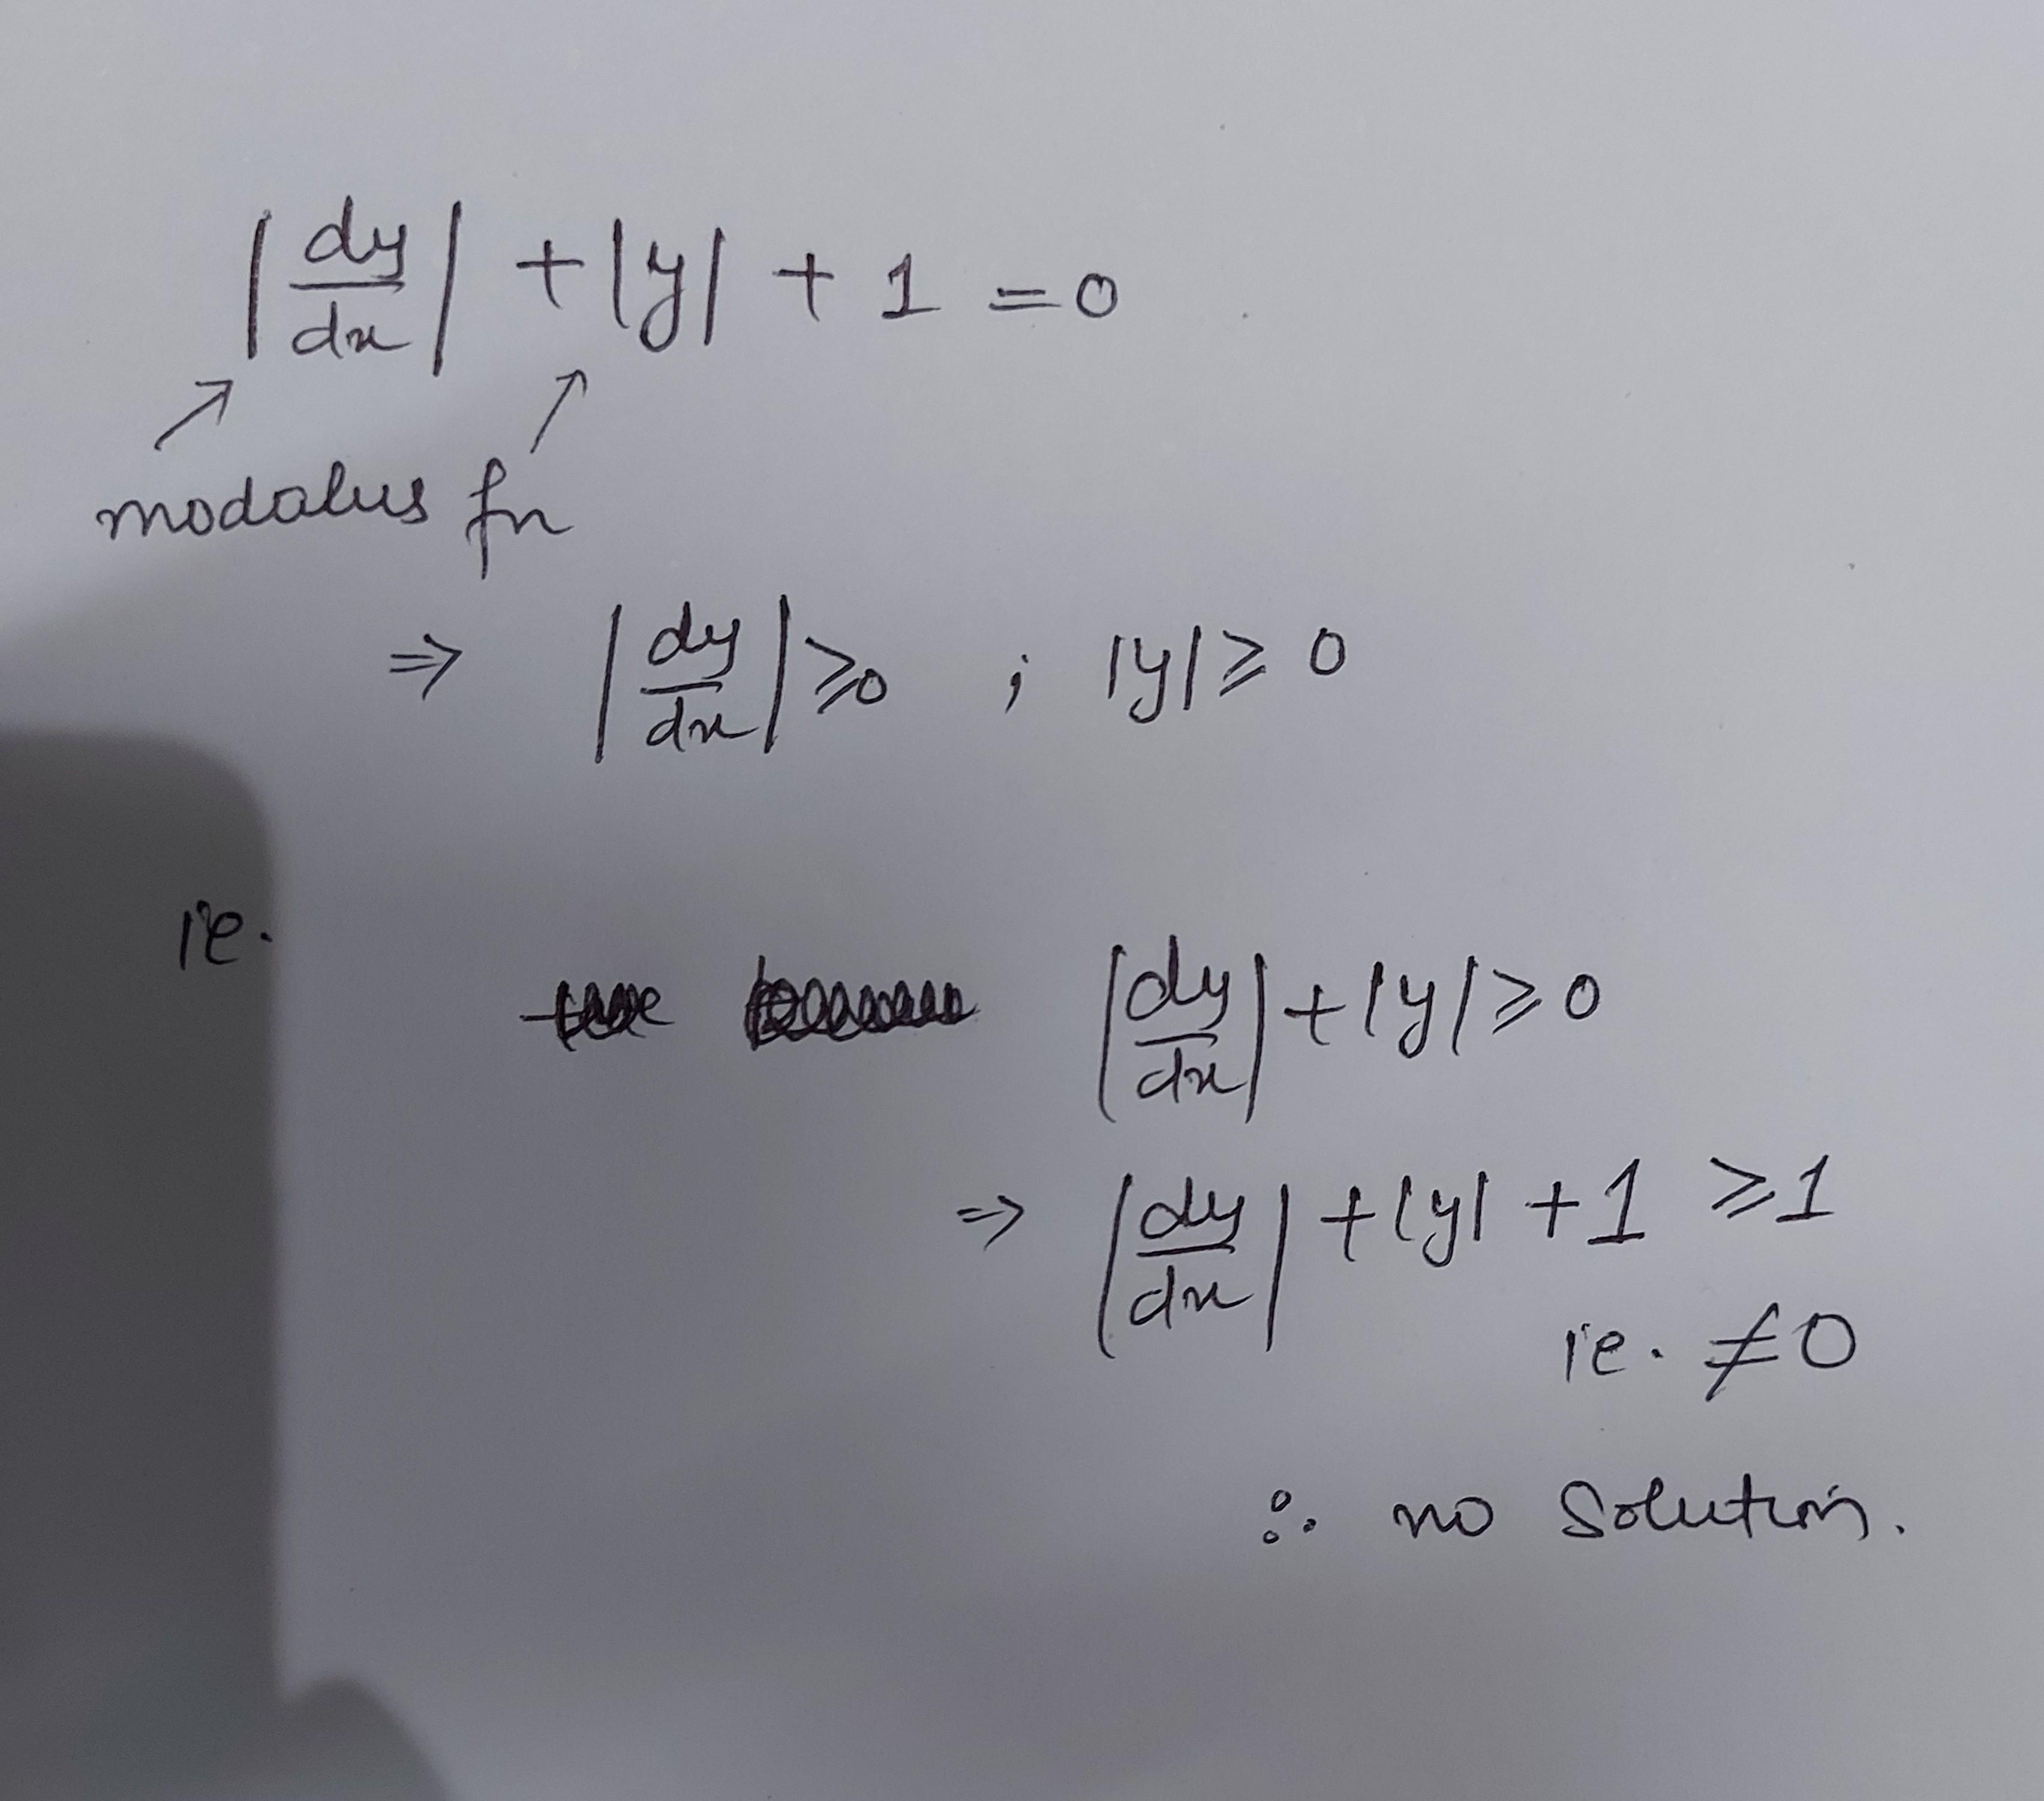 |dy/dx| + |y| + 1 = 0
modalus fn
⇒ |dy/dx| ≥ 0 ; |y| ≥ 0
ie.
|dy/dx| + |y| ≥ 0
⇒ |dy/dx| + |y| + 1 ≥ 1
ie. ≠ 0
∴ no solution.